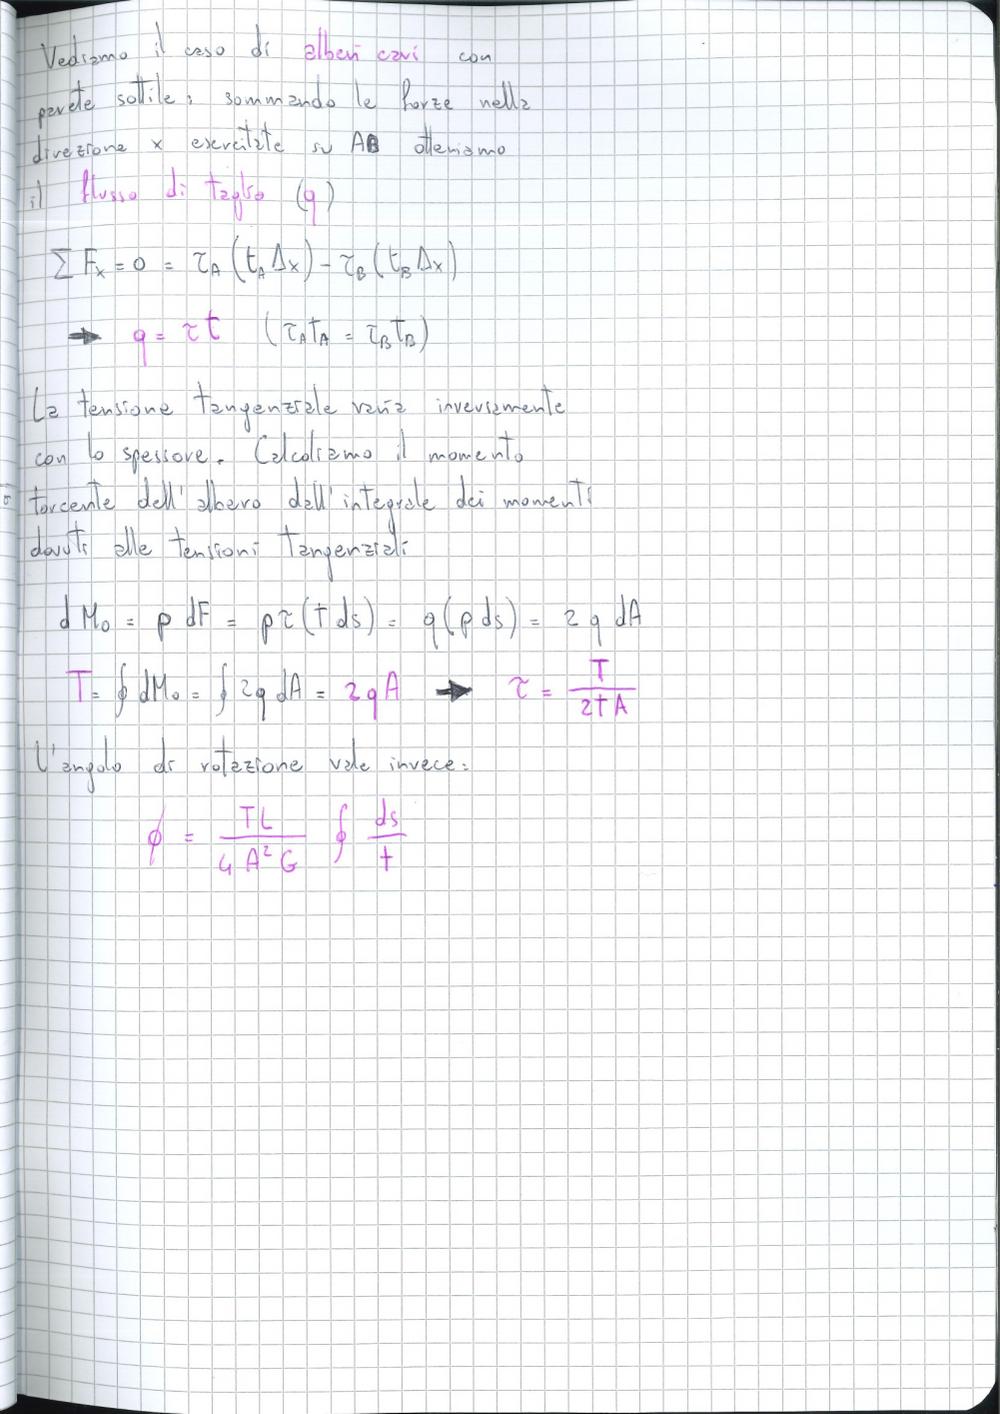 Vediamo il caso di alberi cavi con
parete sottile: sommando le forze nella
direzione x esercitate su AB otteniamo
il flusso di taglio (q)
∑ Fx = 0 = τA (tA Δx) - τB (tB Δx)
→ q = τt (τA tA = τB tB)
La tensione tangenziale varia inversamente
con lo spessore. Calcoliamo il momento
torcente dell'albero dall'integrale dei momenti
dovuti alle tensioni tangenziali
dM₀ = p dF = pτ(t ds) = q(p ds) = 2q dA
T = ∮ dM₀ = ∮ 2q dA = 2qA → τ = T / 2tA
L'angolo di rotazione vale invece:
φ = TL / 4A²G ∮ ds / t